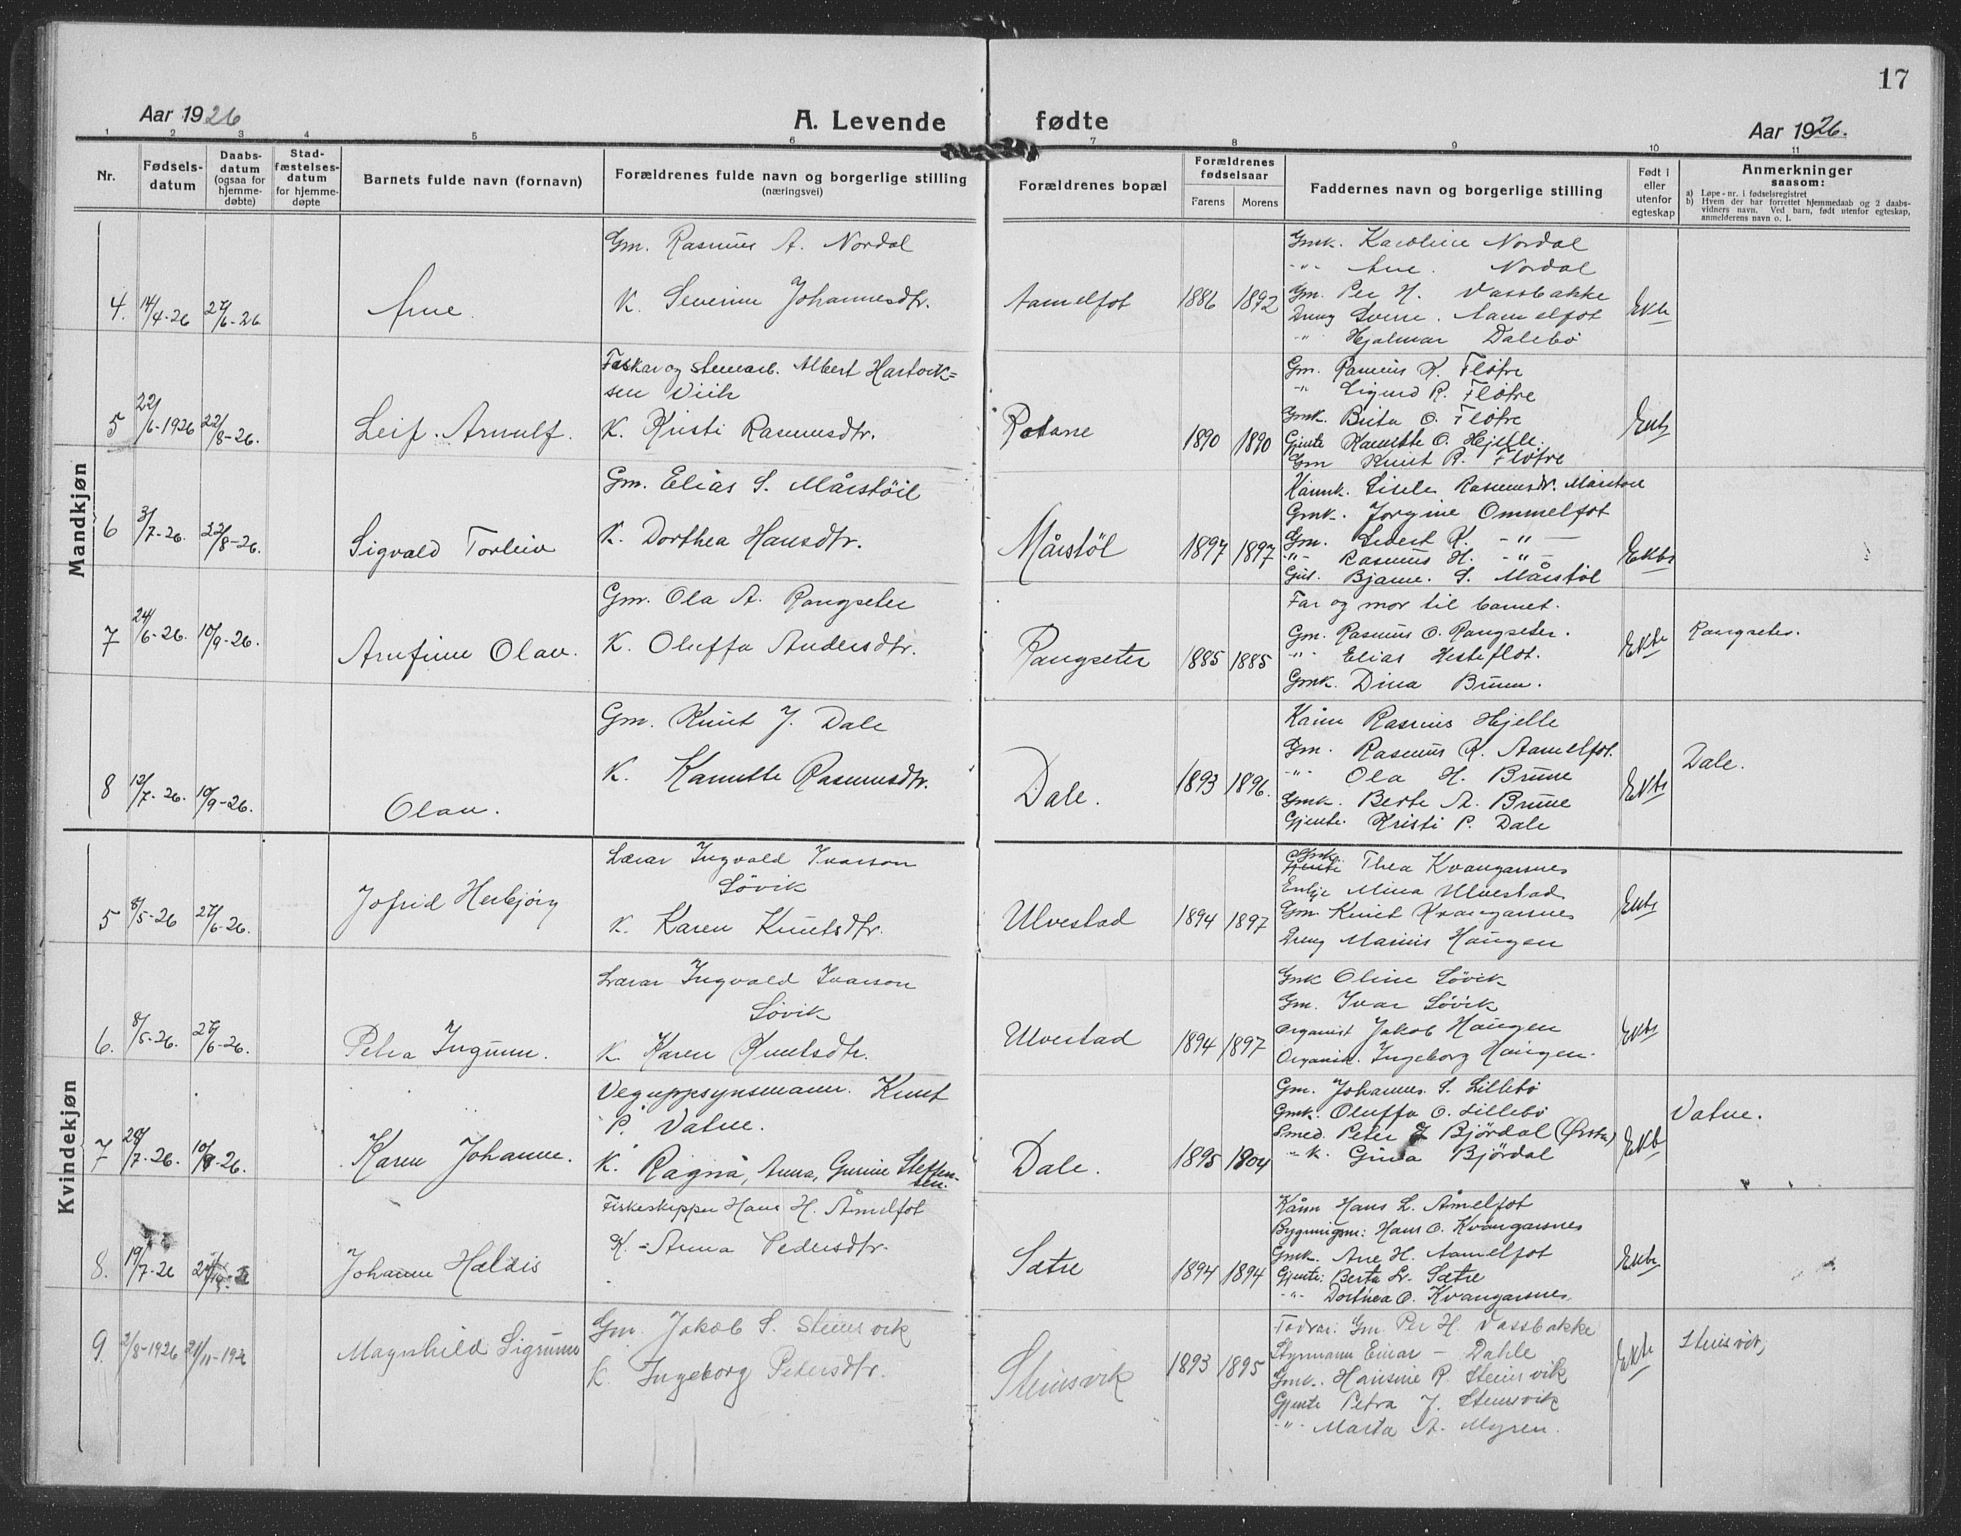 17
Aar 1926
A. Levende fødte
Aar 1926.
1 2 3 4 5 6 7 8 9 10 11
Nr.
Fødsels-
datum
Daabs-
datum
(ogsaa for
hjemme-
døbte)
Stad-
fæstelses-
datum
for hjemme-
døpte
Barnets fulde navn (fornavn)
Forældrenes fulde navn og borgerlige stilling
(næringsvei)
Forældrenes bopæl
Forældrenes
fødselsaar
Farens Morens
Faddernes navn og borgerlige stilling
Født i
eller
utenfor
egteskap
Anmerkninger
saasom:
a) Løpe-nr. i fødselsregistret
b) Hvem der har forrettet hjemmedaab og 2 daabs-
vidners navn. Ved barn, født utenfor egteskap,
anmelderens navn o. l.
Mandkjøn
4. 14/4-26 27/6-26 Arne.
Gm. Rasmus A. Nordal
K. Severine Johannesdtr.
Aamelfot 1886 1892
Gmk. Karoline Nordal
-"- Ane. Nordal
Gm. Per H. Vassbakke
Dreng Sverre. Aamelfot
" Hjalmar Dalebø
Ekte
5 22/6-1926 22/8-26. Leif. Arnulf.
Fiskar og stenarb. Albert Hartvik=
sen Viik
K. Kristi Rasmusdtr.
Rotane 1890 1890
Gm. Rasmus K. Fløtre
-"- Sigurd R. Fløtre
Gmk. Brita O. Fløtre
Gjente Kanutte O. Hjelle.
Gm Knut R. Fløtre
Ekte
6 3/7-26. 22/8-26. Sigvald Torleiv
Gm. Elias S. Mårstøil
K. Dorthea Hansdtr.
Mårstøl 1897 1897
Kånnk. Sisele Rasmusdr. Mårstøil
Gmk. Jorgine Ommelfot
Gm. Sivert K. -"-
-"- Rasmus H. -"-
Gut. Bjarne. S. Mårstøl
Ekte
7 24/6-26. 10/9-26. Arnfinn Olav.
Gm. Ola A. Rangseter
K. Oluffa Andersdtr.
Rangseter 1885 1885
Far og mor til barnet.
Gm. Rasmus O. Rangseter.
-"- Elias Hesteflot.
Gmk. Dina Brune.
Ekte
Rangseter.
8 13/7-26. 10/9-26. Olav.
Gm. Knut J. Dale
K. Kanutte Rasmusdtr.
Dale. 1893 1896.
Kånn Rasmus Hjelle
Gm. Rasmus K. Aamelfot.
-"- Ola H. Brune
Gmk. Berte A. Brune
Gjente. Kristi P. Dale
Ekte
Dale.
Kvindekjøn
5 8/5-26 27/6-26. Jofrid Herbjørg
Lærar Ingvald Ivarson
Søvik
K. Karen Knutsdtr.
Ulvestad 1894 1897
Gmk. Thea Kvangarsnes
Enkje Mina Ulvestad
Gm. Knut Kvangarsnes
Dreng Marius Haugen
Ekte
6. 8/5-26. 27/6-26. Petra Ingunn.
Lærar Ingvald Ivarson
Søvik
K. Karen Knutsdtr.
Ulvestad 1894 1897
Gmk Oline Søvik
Gm. Ivar Søvik
Organist Jakob Haugen
Organistk. Ingeborg Haugen.
Ekte
7 28/7-26. 10/9-26. Karen Johanne.
Veguppsynsmann. Knut
P. Vatne.
K. Ragna, Anna, Gunine Steffen-
sen.
Dale. 1895 1904
Gm. Johannes S. Lillebø
Gmk. Oluffa O. Lillebø
Smed. Peter J Bjørdal (Ørsta)
-"- k. Gina Bjørdal
Ekte
Vatne.
8. 19/7-26 Johanne Haldis
Fiskeskipper Hans H. Åmelfot
K. - Anna Pedersdtr.
Sætre 1894 1894
Kånn Hans L. Åmelfot
Bygningsm: Hans O. Kvangarsnes
Gmk. Ane H. Aamelfot
Gjente: Berta Sætre
-"- Dorthea O. Kvangarsnes.
Ekte
9. 2/8-1926 21/11-1926 Magnhild Sigrunn
Gm. Jakob S. Steinsvik
K. Ingeborg Petersdtr.
Steinsvik 1893 1895
Fadrar. Gm. Per H. Vassbakke
Styrmann Einar - Dahle
Gmk. Hansine R. Steinsvik
Gjente Petra J. Steinsvik
-"- Marta A. Myren.
Ekte